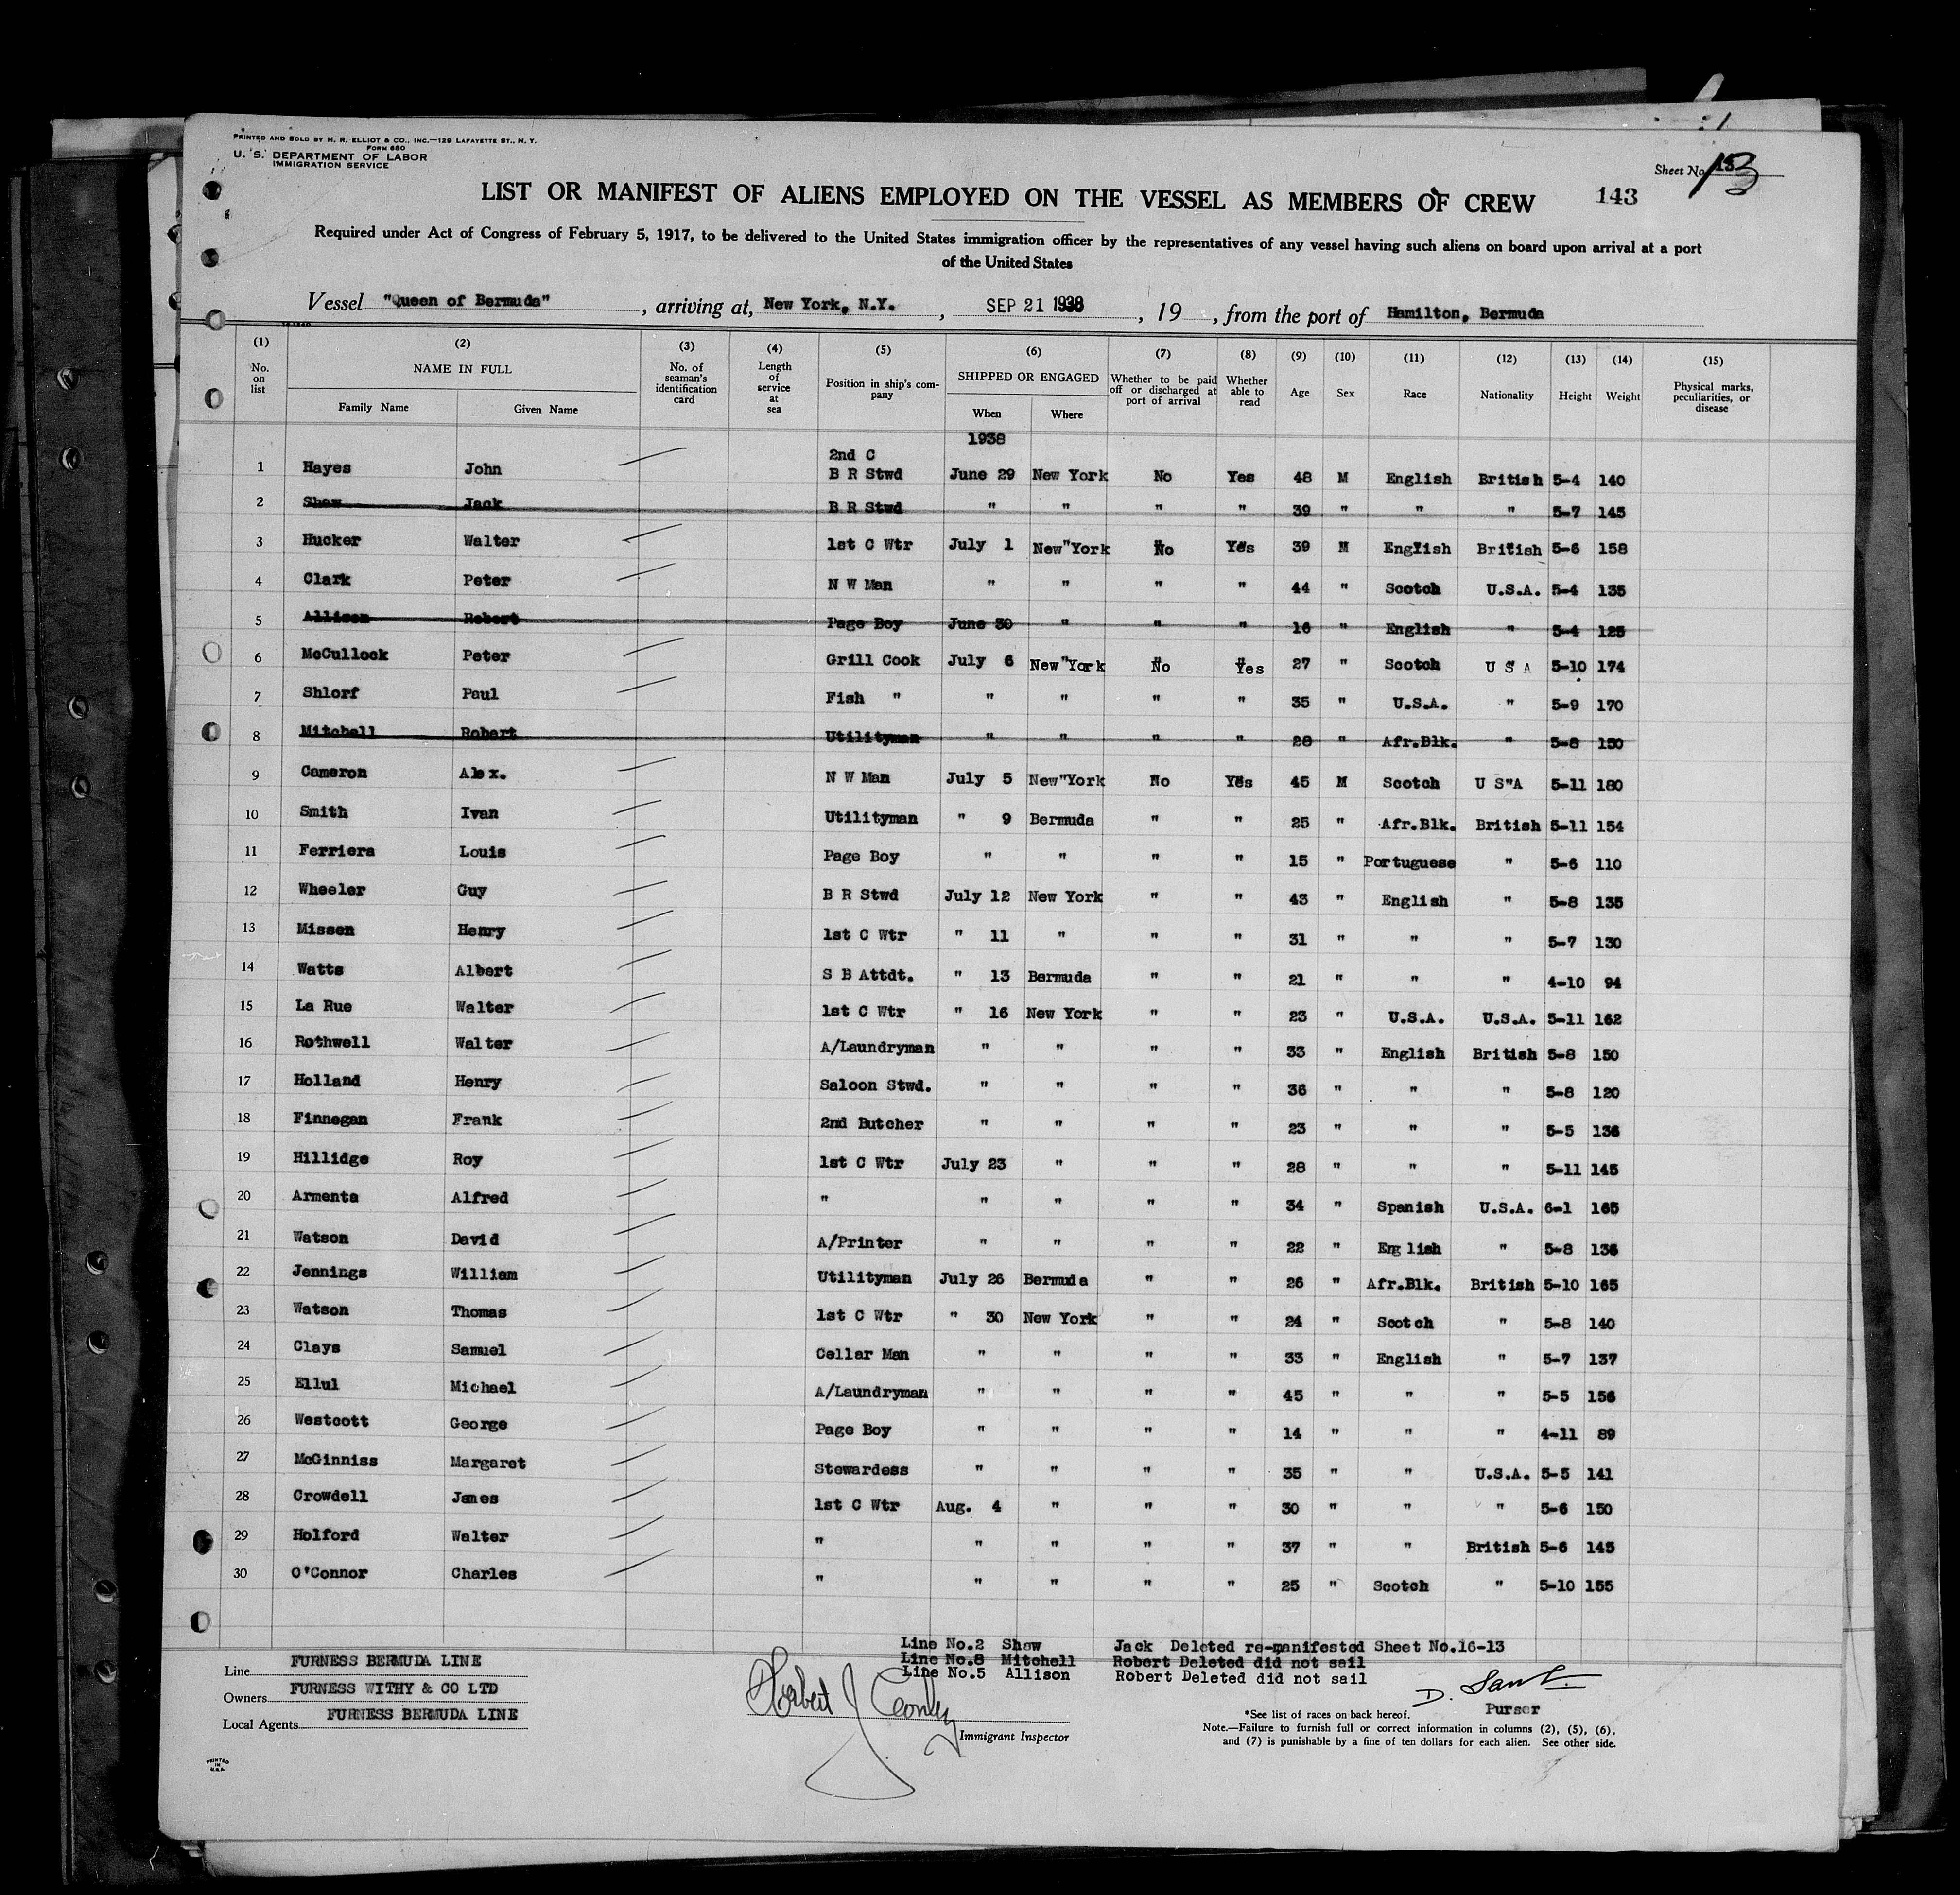 PRINTED AND SOLD BY H. R. ELLIOT & CO., INC.—129 LAFAYETTE ST., N. Y.
FORM 680
U. S. DEPARTMENT OF LABOR
IMMIGRATION SERVICE
Sheet No. 13
LIST OR MANIFEST OF ALIENS EMPLOYED ON THE VESSEL AS MEMBERS OF CREW 143
Required under Act of Congress of February 5, 1917, to be delivered to the United States immigration officer by the representatives of any vessel having such aliens on board upon arrival at a port
of the United States
Vessel "Queen of Bermuda" , arriving at, New York, N.Y. , SEP 21 1938 , 19 , from the port of Hamilton, Bermuda
(1) No. on list (2) NAME IN FULL Family Name Given Name (3) No. of seaman's identification card (4) Length of service at sea (5) Position in ship's company (6) SHIPPED OR ENGAGED When Where (7) Whether to be paid off or discharged at port of arrival (8) Whether able to read (9) Age (10) Sex (11) Race (12) Nationality (13) Height (14) Weight (15) Physical marks, peculiarities, or disease
1938
1 Hayes John 2nd C B R Stwd June 29 New York No Yes 48 M English British 5-4 140
2 Shaw Jack B R Stwd " " " " 39 " " " 5-7 145
3 Hucker Walter 1st C Wtr July 1 New York No Yes 39 M English British 5-6 158
4 Clark Peter N W Man " " " " 44 " Scotch U.S.A. 5-4 135
5 Allison Robert Page Boy June 30 " " " 16 " English " 5-4 125
6 McCullock Peter Grill Cook July 6 New York No Yes 27 " Scotch U S A 5-10 174
7 Shlorf Paul Fish " " " " " 35 " U.S.A. " 5-9 170
8 Mitchell Robert Utilityman " " " " 28 " Afr.Blk. " 5-8 150
9 Cameron Alex. N W Man July 5 New York No Yes 45 M Scotch U S A 5-11 180
10 Smith Ivan Utilityman " 9 Bermuda " " 25 " Afr.Blk. British 5-11 154
11 Ferriera Louis Page Boy " " " " 15 " Portuguese " 5-6 110
12 Wheeler Guy B R Stwd July 12 New York " " 43 " English " 5-8 135
13 Missen Henry 1st C Wtr " 11 " " " 31 " " " 5-7 130
14 Watts Albert S B Attdt. " 13 Bermuda " " 21 " " " 4-10 94
15 La Rue Walter 1st C Wtr " 16 New York " " 23 " U.S.A. U.S.A. 5-11 162
16 Rothwell Walter A/Laundryman " " " " 33 " English British 5-8 150
17 Holland Henry Saloon Stwd. " " " " 36 " " " 5-8 120
18 Finnegan Frank 2nd Butcher " " " " 23 " " " 5-5 136
19 Hillidge Roy 1st C Wtr July 23 " " " 28 " " " 5-11 145
20 Armenta Alfred " " " " " 34 " Spanish U.S.A. 6-1 165
21 Watson David A/Printer " " " " 22 " English " 5-8 136
22 Jennings William Utilityman July 26 Bermuda " " 26 " Afr.Blk. British 5-10 165
23 Watson Thomas 1st C Wtr " 30 New York " " 24 " Scotch " 5-8 140
24 Clays Samuel Cellar Man " " " " 33 " English " 5-7 137
25 Ellul Michael A/Laundryman " " " " 45 " " " 5-5 156
26 Westcott George Page Boy " " " " 14 " " " 4-11 89
27 McGinniss Margaret Stewardess " " " " 35 " " U.S.A. 5-5 141
28 Crowdell James 1st C Wtr Aug. 4 " " " 30 " " " 5-6 150
29 Holford Walter " " " " " 37 " " British 5-6 145
30 O'Connor Charles " " " " " 25 " Scotch " 5-10 155
Line No.2 Shaw Jack Deleted re-manifested Sheet No.16-13
Line No.8 Mitchell Robert Deleted did not sail
Line No.5 Allison Robert Deleted did not sail
Line FURNESS BERMUDA LINE
Owners FURNESS WITHY & CO LTD
Local Agents FURNESS BERMUDA LINE
Herbert J
Immigrant Inspector
D.
Purser
*See list of races on back hereof.
Note.—Failure to furnish full or correct information in columns (2), (5), (6),
and (7) is punishable by a fine of ten dollars for each alien. See other side.
PRINTED
IN
U.S.A.